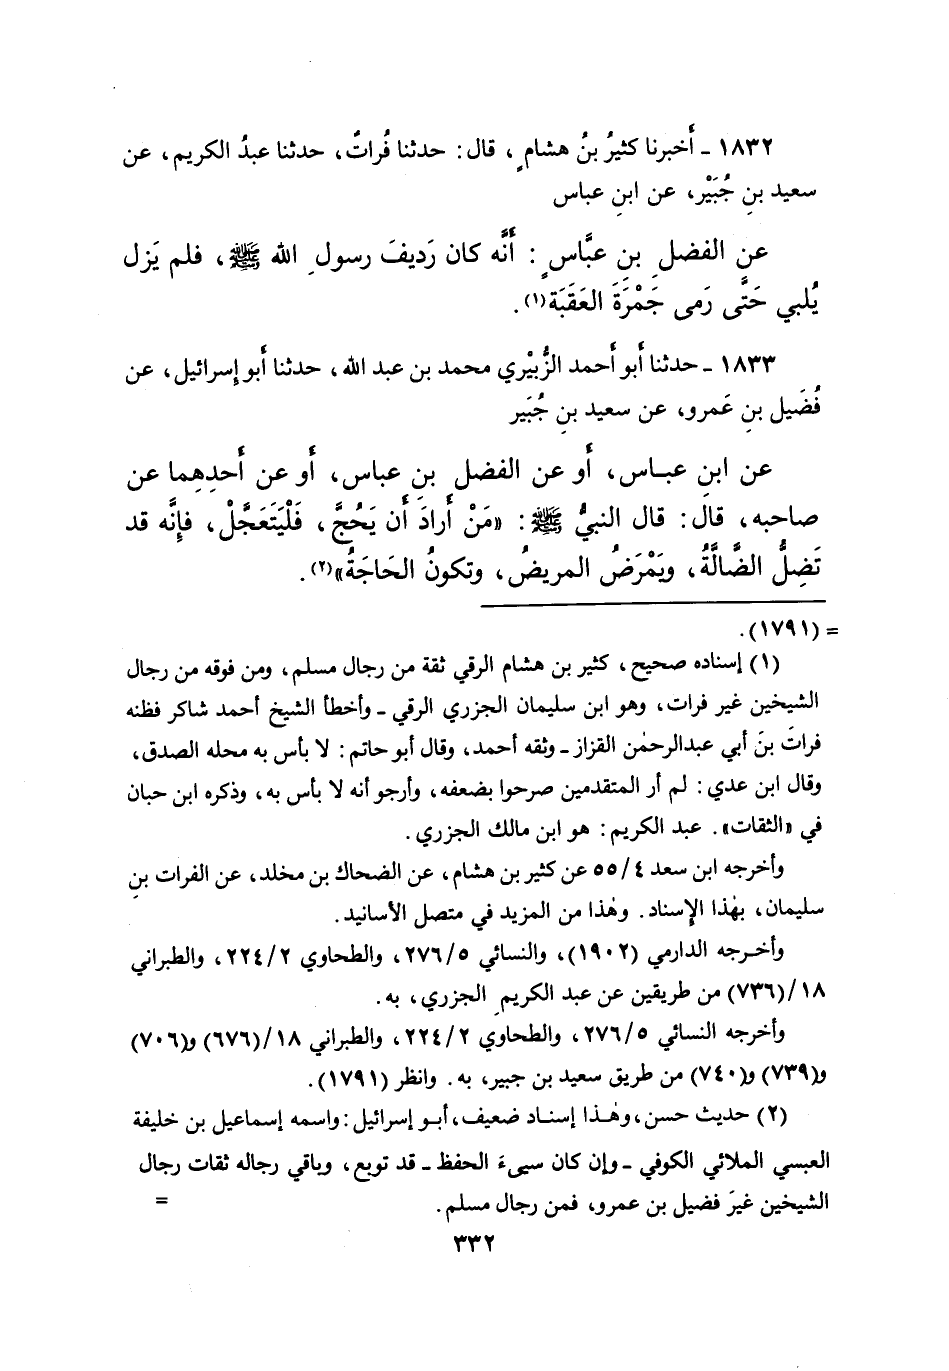 ١٨٣٢ ـ أَخبرنا كثيرُ بنُ هشامٍ، قال: حدثنا فُراتٌ، حدثنا عبدُ الكريم، عن
سعيد بنِ جُبَيْر، عن ابنِ عباس
عن الفضلِ بنِ عبَّاسٍ: أَنَّه كان رَديفَ رسولِ الله ﷺ، فلم يَزل
يُلبي حَتَّى رَمى جَمْرَةَ العَقَبَة(١).
١٨٣٣ ـ حدثنا أَبو أَحمد الزُّبيْري محمد بن عبد الله، حدثنا أَبو إسرائيل، عن
فُضَيل بنِ عَمرو، عن سعيد بنِ جُبَير
عن ابنِ عباس، أَو عن الفضل بنِ عباس، أَو عن أَحدِهِما عن
صاحبه، قال: قال النبيُّ ﷺ: «مَنْ أَرادَ أَن يَحُجَّ، فَلْيَتَعَجَّلْ، فإِنَّه قد
تَضِلُّ الضَّالَّةُ، ويَمْرَضُ المريضُ، وتكونُ الحَاجَةُ»(٢).
= (١٧٩١).
(١) إسناده صحيح، كثير بن هشام الرقي ثقة من رجال مسلم، ومن فوقه من رجال
الشيخين غير فرات، وهو ابن سليمان الجزري الرقي ـ وأخطأ الشيخ أحمد شاكر فظنه
فراتَ بنَ أبي عبدالرحمٰن القزاز ـ وثقه أحمد، وقال أبو حاتم: لا بأس به محله الصدق،
وقال ابن عدي: لم أر المتقدمين صرحوا بضعفه، وأرجو أنه لا بأس به، وذكره ابن حبان
في «الثقات». عبد الكريم: هو ابن مالك الجزري.
وأخرجه ابن سعد ٥٥/٤ عن كثير بن هشام، عن الضحاك بن مخلد، عن الفرات بنِ
سليمان، بهٰذا الإِسناد. وهٰذا من المزيد في متصل الأسانيد.
وأخرجه الدارمي (١٩٠٢)، والنسائي ٢٧٦/٥، والطحاوي ٢٢٤/٢، والطبراني
١٨/(٧٣٦) من طريقين عن عبد الكريمِ الجزري، به.
وأخرجه النسائي ٢٧٦/٥، والطحاوي ٢٢٤/٢، والطبراني ١٨/(٦٧٦) و(٧٠٦)
و(٧٣٩) و(٧٤٠) من طريق سعيد بن جبير، به. وانظر (١٧٩١).
(٢) حديث حسن، وهٰذا إسناد ضعيف، أبو إسرائيل: واسمه إسماعيل بن خليفة
العبسي الملائي الكوفي ـ وإن كان سيىءَ الحفظ ـ قد توبع، وباقي رجاله ثقات رجال
الشيخين غيرَ فضيل بن عمرو، فمن رجال مسلم. =
٣٣٢